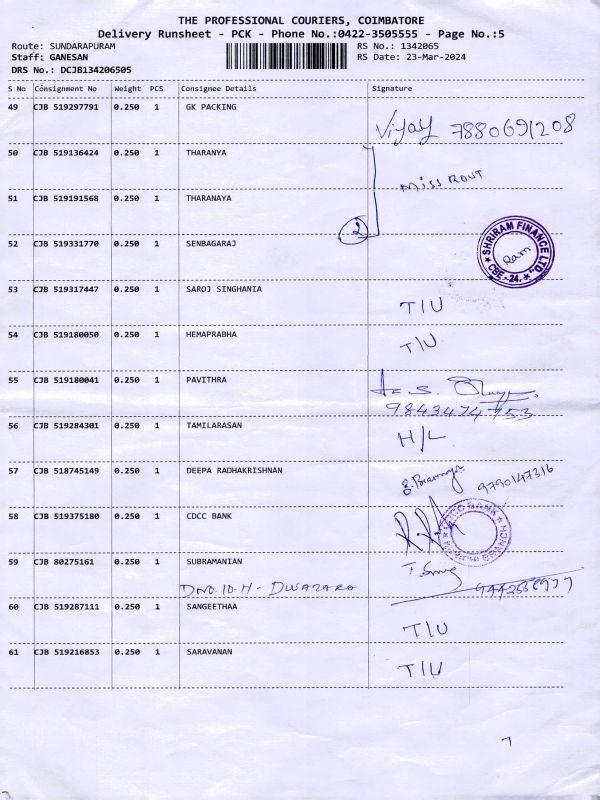 THE PROFESSIONAL COURIERS, COIMBATORE
Delivery Runsheet - PCK - Phone No.:0422-3505555 - Page No.:5
Route: SUNDARAPURAM RS No.: 1342065
Staff: GANESAN RS Date: 23-Mar-2024
DRS No.: DCJB134206505
S No Consignment No Weight PCS Consignee Details Signature
49 CJB 519297791 0.250 1 GK PACKING
Vijay 7880691208
50 CJB 519136424 0.250 1 THARANYA
MISS ROUT
51 CJB 519191568 0.250 1 THARANAYA
2
52 CJB 519331770 0.250 1 SENBAGARAJ
SHRIRAM FINANCE LTD CBE - 24.
Ram
53 CJB 519317447 0.250 1 SAROJ SINGHANIA
T/U
54 CJB 519180050 0.250 1 HEMAPRABHA
T/U
55 CJB 519180041 0.250 1 PAVITHRA
9843474753
56 CJB 519284301 0.250 1 TAMILARASAN
H/L
57 CJB 518745149 0.250 1 DEEPA RADHAKRISHNAN
9790147316
58 CJB 519375180 0.250 1 CDCC BANK
BANK BRANCH
59 CJB 80275161 0.250 1 SUBRAMANIAN
DNO.10.H-
60 CJB 519287111 0.250 1 SANGEETHAA
T/U
61 CJB 519216853 0.250 1 SARAVANAN
T/U
7